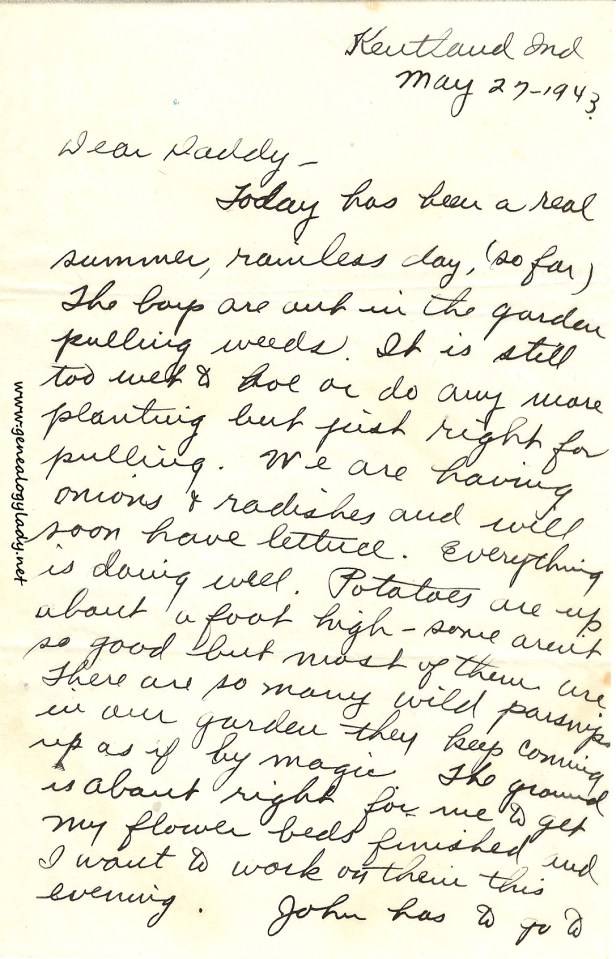 Kentland Ind
May 27-1943.
Dear Daddy -
Today has been a real
summer, rainless day, (so far)
The boys are out in the garden
pulling weeds. It is still
too wet to hoe or do any more
planting but just right for
pulling. We are having
onions & radishes and will
soon have lettuce. Everything
is doing well. Potatoes are up
about a foot high - some aren't
so good but most of them are
There are so many wild parsnips
in our garden they keep coming
up as if by magic The ground
is about right for me to get
my flower beds finished and
I want to work on them this
evening. John has to go to
www.genealogylady.net